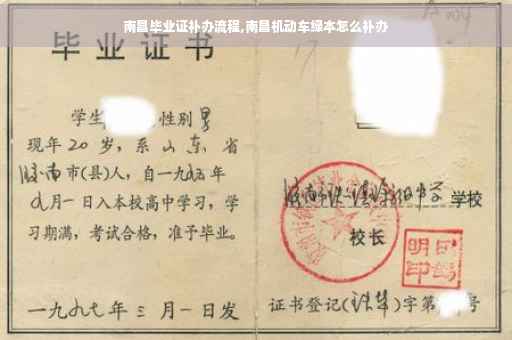 南昌毕业证补办流程,南昌机动车绿本怎么补办
毕业证书
学生 性别男
现年20岁，系山东，省
济南市(县)人，自一九九五年
九月一日入本校高中学习，学
习期满，考试合格，准予毕业。
一九九七年三月一日发
学校
校长
证书登记( )字第 号